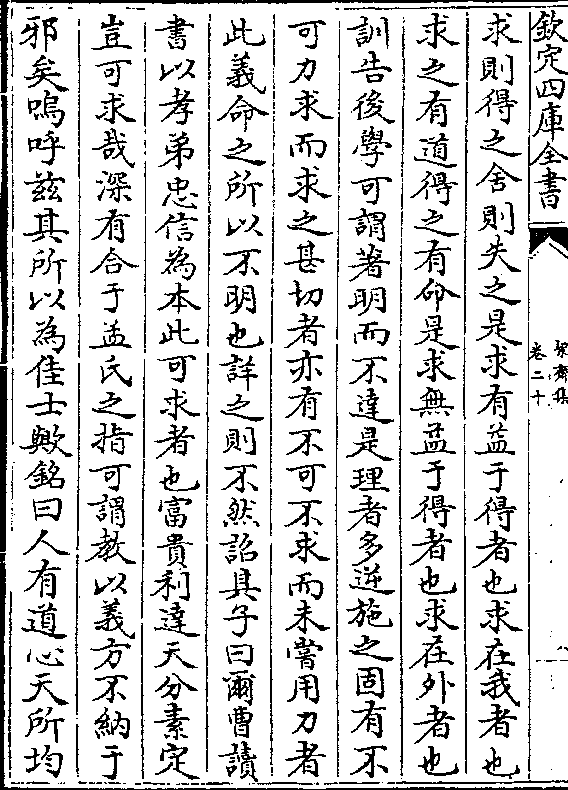 欽定四庫全書
絜齋集
卷二十
求則得之舍則失之是求有益于得者也求在我者也
求之有道得之有命是求無益于得者也求在外者也
訓告後學可謂著明而不達是理者多逆施之固有不
可力求而求之甚切者亦有不可不求而未嘗用力者
此義命之所以不明也詳之則不然詔其子曰爾曹讀
書以孝弟忠信為本此可求者也富貴利達天分素定
豈可求哉深有合于孟氏之指可謂教以義方不納于
邪矣嗚呼茲其所以為佳士歟銘曰人有道心天所均